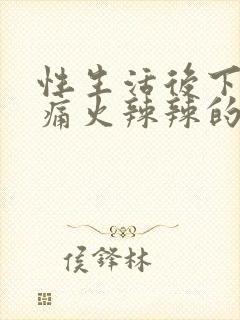 性生活后下
痛火辣辣的
侯铎林